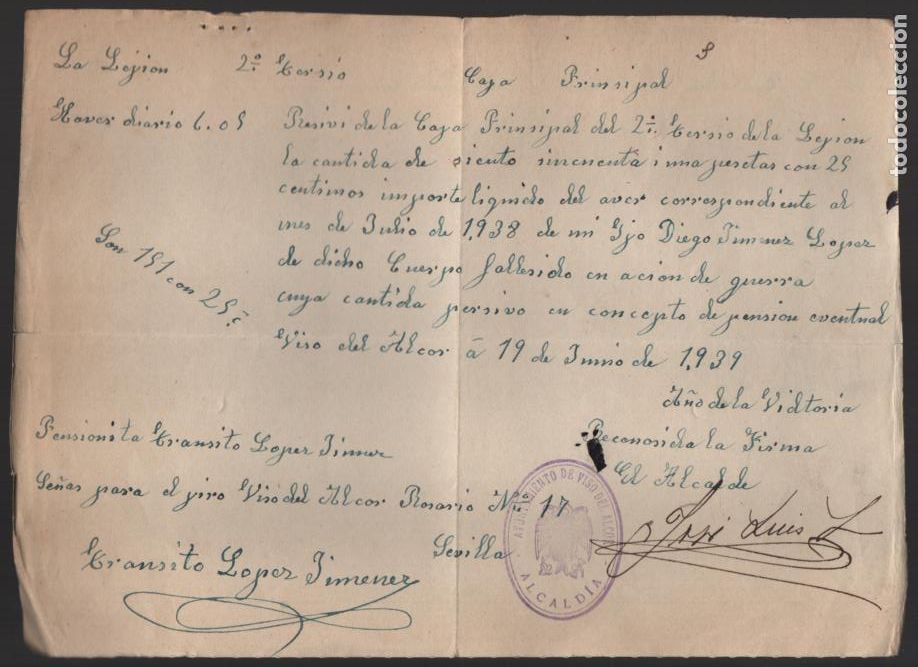 La Lejion 2º Tersio Caja Prinsipal
Haver diario 6.05
Resivi de la Caja Prinsipal del 2º Tersio de la Lejion
la cantida de siento sincuenta i una pesetas con 25
centimos importe liquido del aver correspondiente al
mes de Julio de 1,938 de mi Ijo Diego Jimenez Lopez
de dicho Cuerpo fallesido en acion de guerra
cuya cantida persivo en concepto de pension eventual
Son 151 con 25 c.
Viso del Alcor á 19 de Junio de 1,939
Año de la Vidtoria
Reconosida la Firma
El Alcalde
Pensionita Transito Lopez Jimnez
Señas para el jiro Viso del Alcor Rosario Nº 17
Sevilla
Transito Lopez Jimenez
José Luis
AYUNTAMIENTO DE VISO DEL ALCOR
ALCALDÍA
todocoleccion